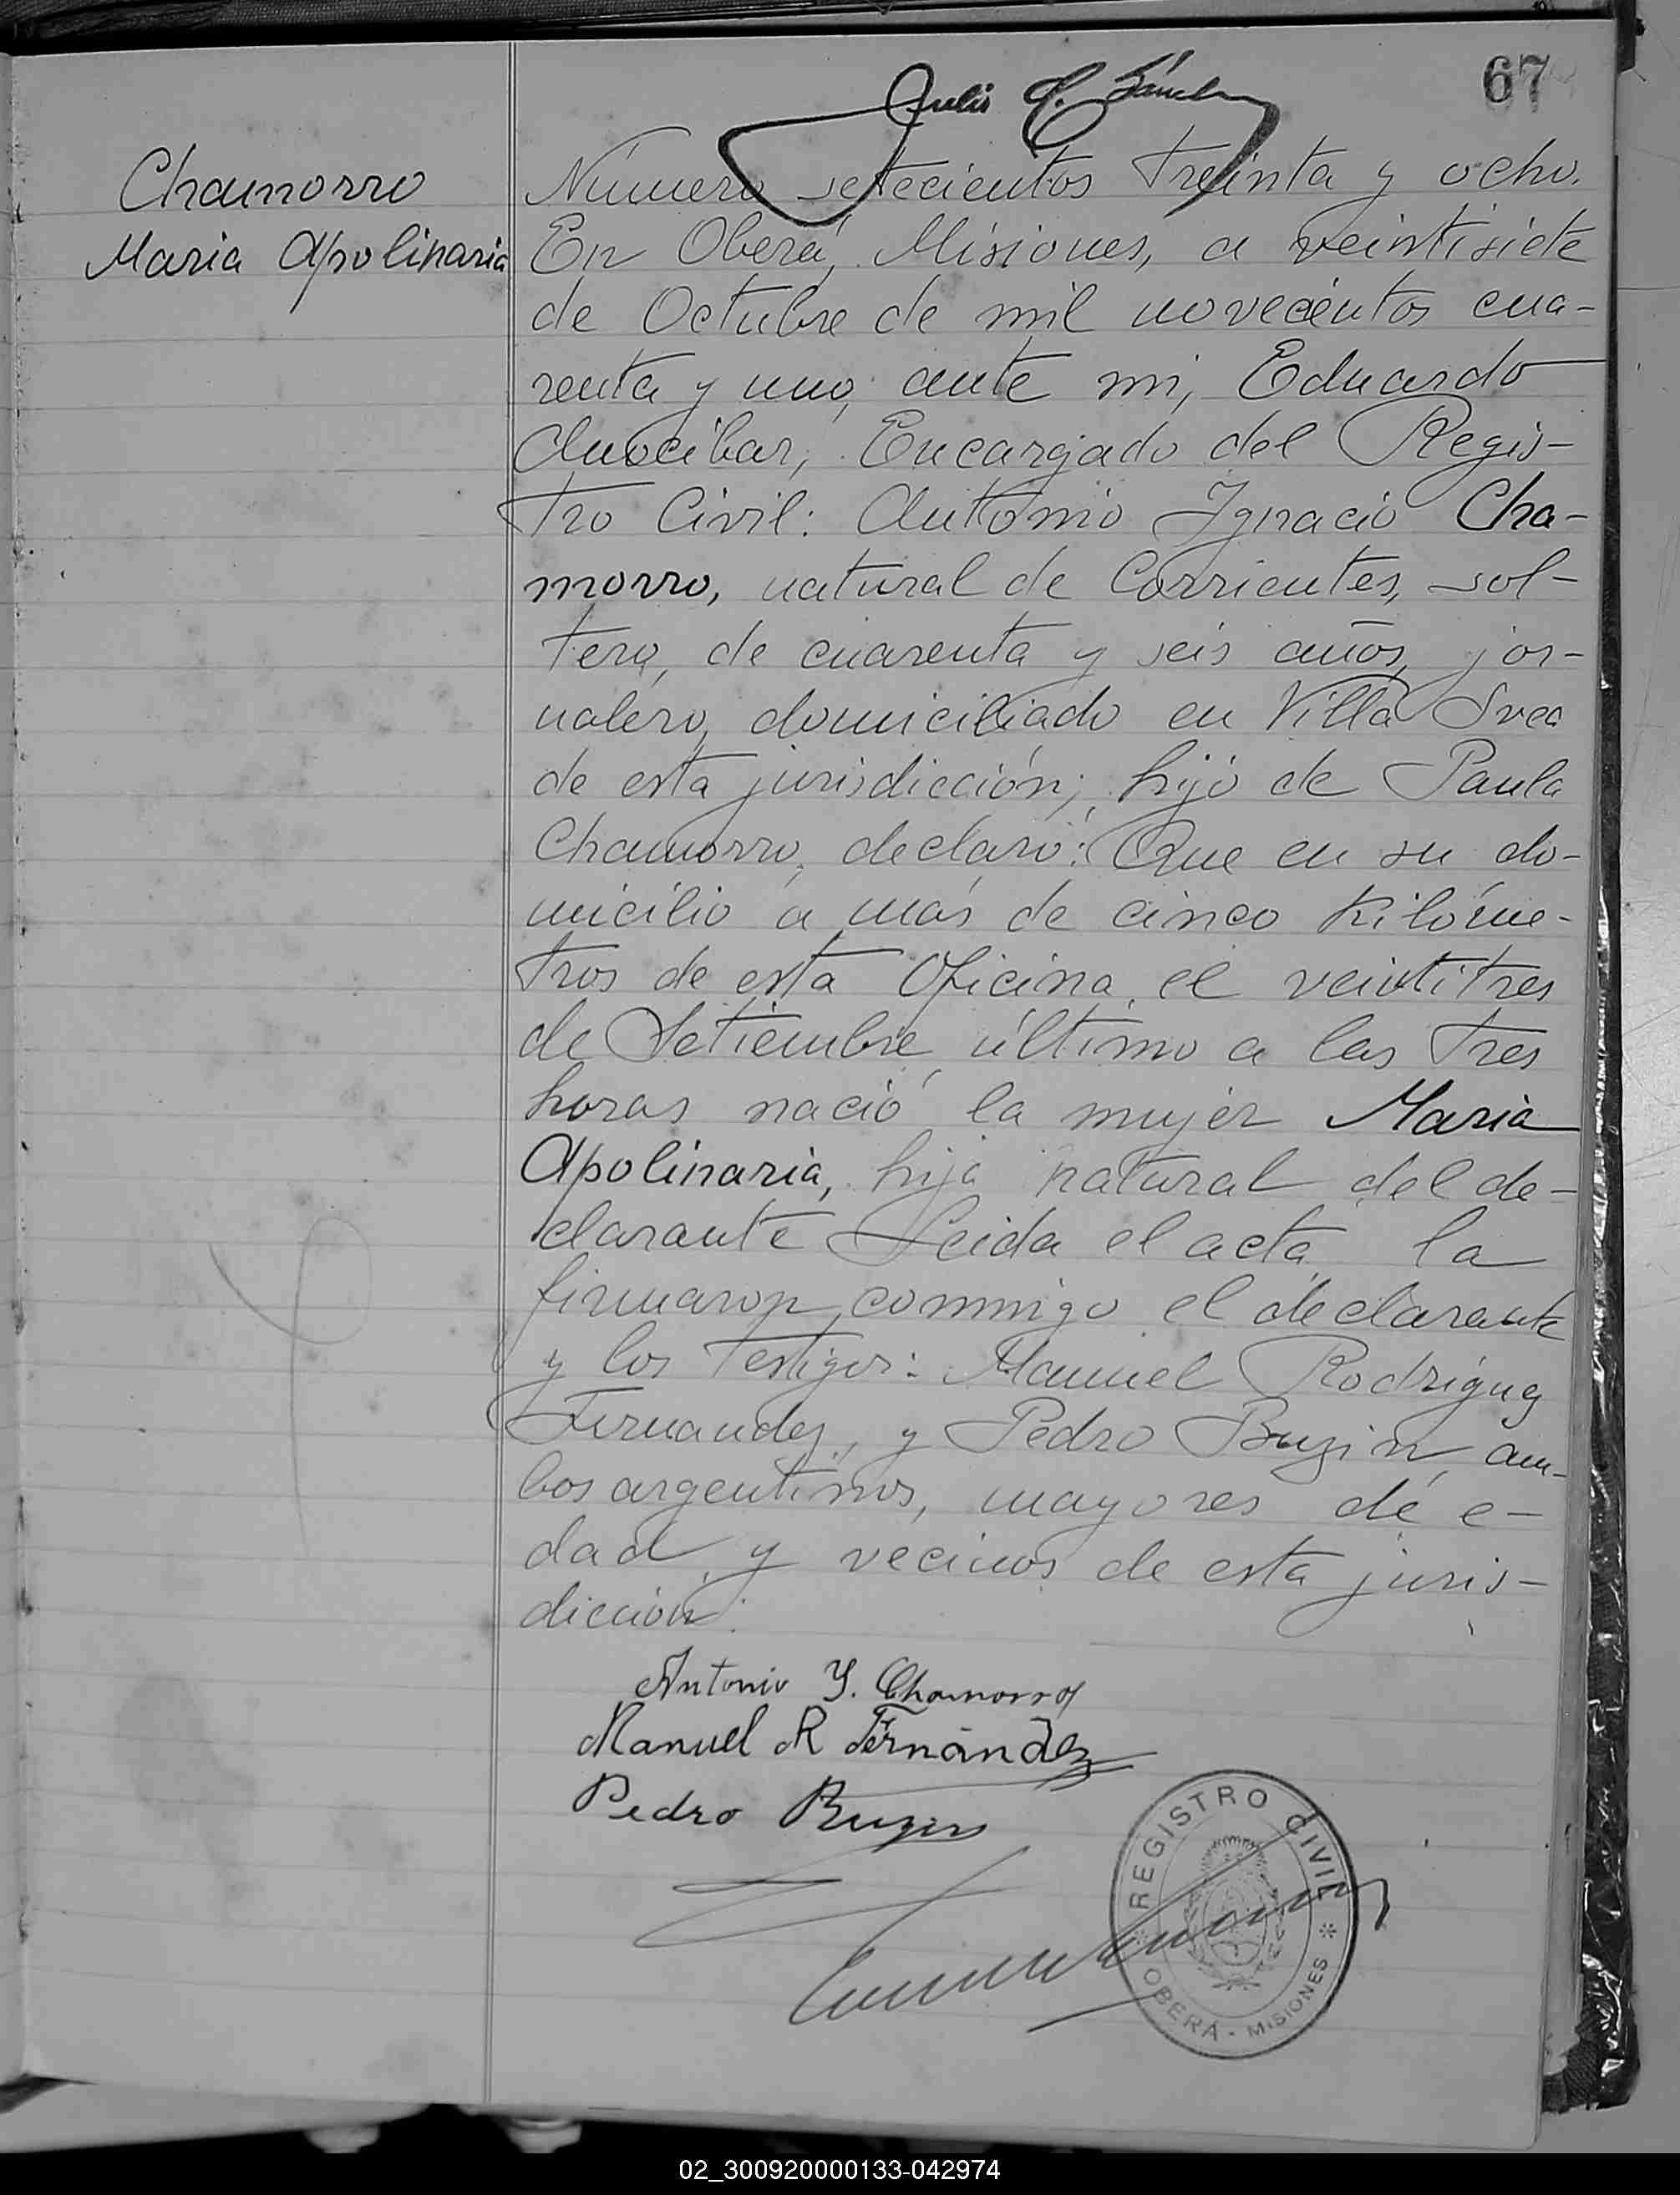 67
Julio C. Sánchez
Chamorro
Maria Apolinaria
Número setecientos treinta y ocho.
En Oberá, Misiones, a veintisiete
de Octubre de mil novecientos cua-
renta y uno, ante mi, Eduardo
Anocibar, Encargado del Regis-
tro Civil: Antonio Ignacio Cha-
morro, natural de Corrientes, sol-
tero, de cuarenta y seis años, jor-
nalero, domiciliado en Villa Svea
de esta jurisdicción; hijo de Paula
Chamorro, declaró: Que en su do-
micilio a más de cinco kilóme-
tros de esta Oficina, el veintitres
de Setiembre último a las tres
horas nació la mujer Maria
Apolinaria, hija natural del de-
clarante Leida el acta, la
firmaron conmigo el declarante
y los testigos: Manuel Rodriguez
Fernandez, y Pedro Buzin, am-
bos argentinos, mayores de e-
dad, y vecinos de esta juris-
dicción.
Antonio Y. Chamorro
Manuel R Fernández
Pedro Buzin
REGISTRO CIVIL
OBERÁ - MISIONES
02_300920000133-042974